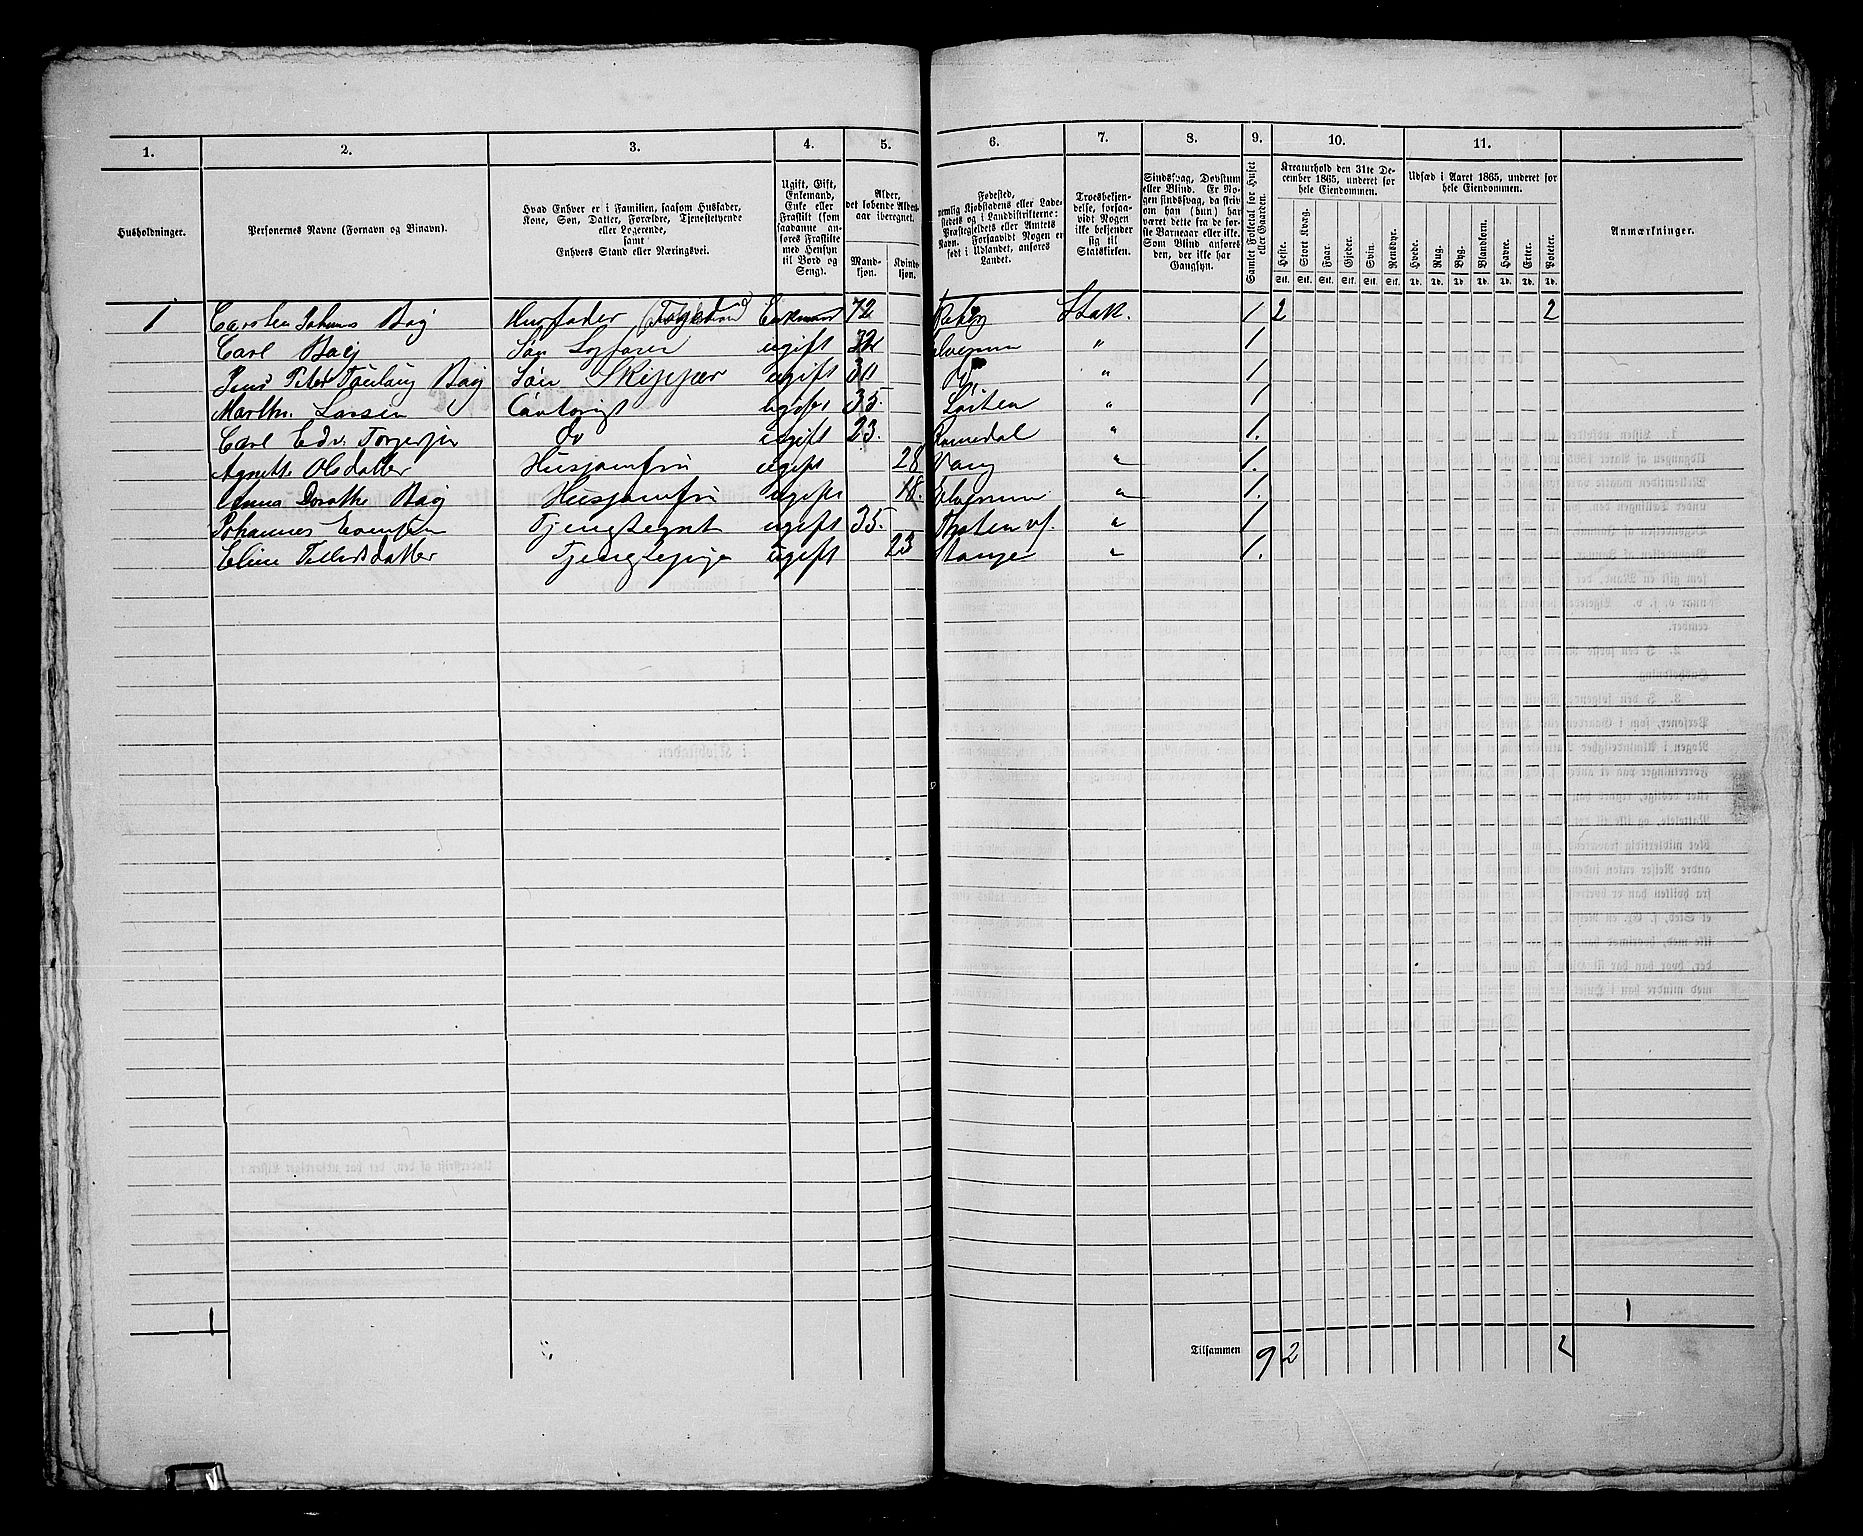 1. 2. 3. 4. 5. 6. 7. 8. 9. 10. 11.
Husholdninger.
Personernes Navne (Fornavn og Binavn).
Hvad Enhver er i Familien, saasom Husfader,
Kone, Søn, Datter, Forældre, Tjenestetyende
eller Logerende,
samt
Enhvers Stand eller Næringsvei.
Ugift, Gift,
Enkemand,
Enke eller
Fraskilt (som
saadanne an-
føres Fraskilte
med Hensyn
til Bord og
Seng).
Alder,
det løbende Alders-
aar iberegnet.
Mand-
kjøn.
Kvinde-
kjøn.
Fødested,
nemlig Kjøbstadens eller Lade-
stedets og i Landdistrikterne:
Præstegjeldets eller Amtets
Navn. Forsaavidt Nogen er
født i Udlandet, anføres
Landet.
Troesbekjen-
delse, forsaa-
vidt Nogen
ikke bekjender
sig til
Statskirken.
Sindssvag, Døvstum
eller Blind. Er No-
gen sindssvag, da skriv
om han (hun) har
været dette fra de før-
ste Barneaar eller ikke.
Som Blind anføres
den, der ikke har
Gangsyn.
Samlet Folketal for Huset
eller Gaarden.
Kreaturhold den 31te De-
cember 1865, underet for
hele Eiendommen.
Heste. Stort Kvæg. Faar. Gjeder. Svin. Rensdyr.
Stk. Stk. Stk. Stk. Stk. Stk.
Udsæd i Aaret 1865, underet for
hele Eiendommen.
Hvede. Rug. Byg. Blandkorn. Havre. Erter. Poteter.
Td. Td. Td. Td. Td. Td. Td.
Anmærkninger.
1 Carsten Johans Bøij Husfader Enkemand 72 Stsk. 1 2 2
Carl Bøij Søn ugift 32 Elverum " 1
Jens Peter Bøij Søn Skipper ugift 30 " 1
Marthn. Larsen Contorist ugift 35. Løiten " 1
Carl Edv. Torgersen Do ugift 23. Romedal " 1.
Agnethe Olsdatter Husjomfru ugift 28 Vang " 1.
Anna Dorothe Bøij Husjomfru ugift 18. Elverum " 1.
Johannes Evensen ugift 35. Thoten " 1
Eline ugift 23 Stange " 1.
1 1
Tilsammen 9 2 2